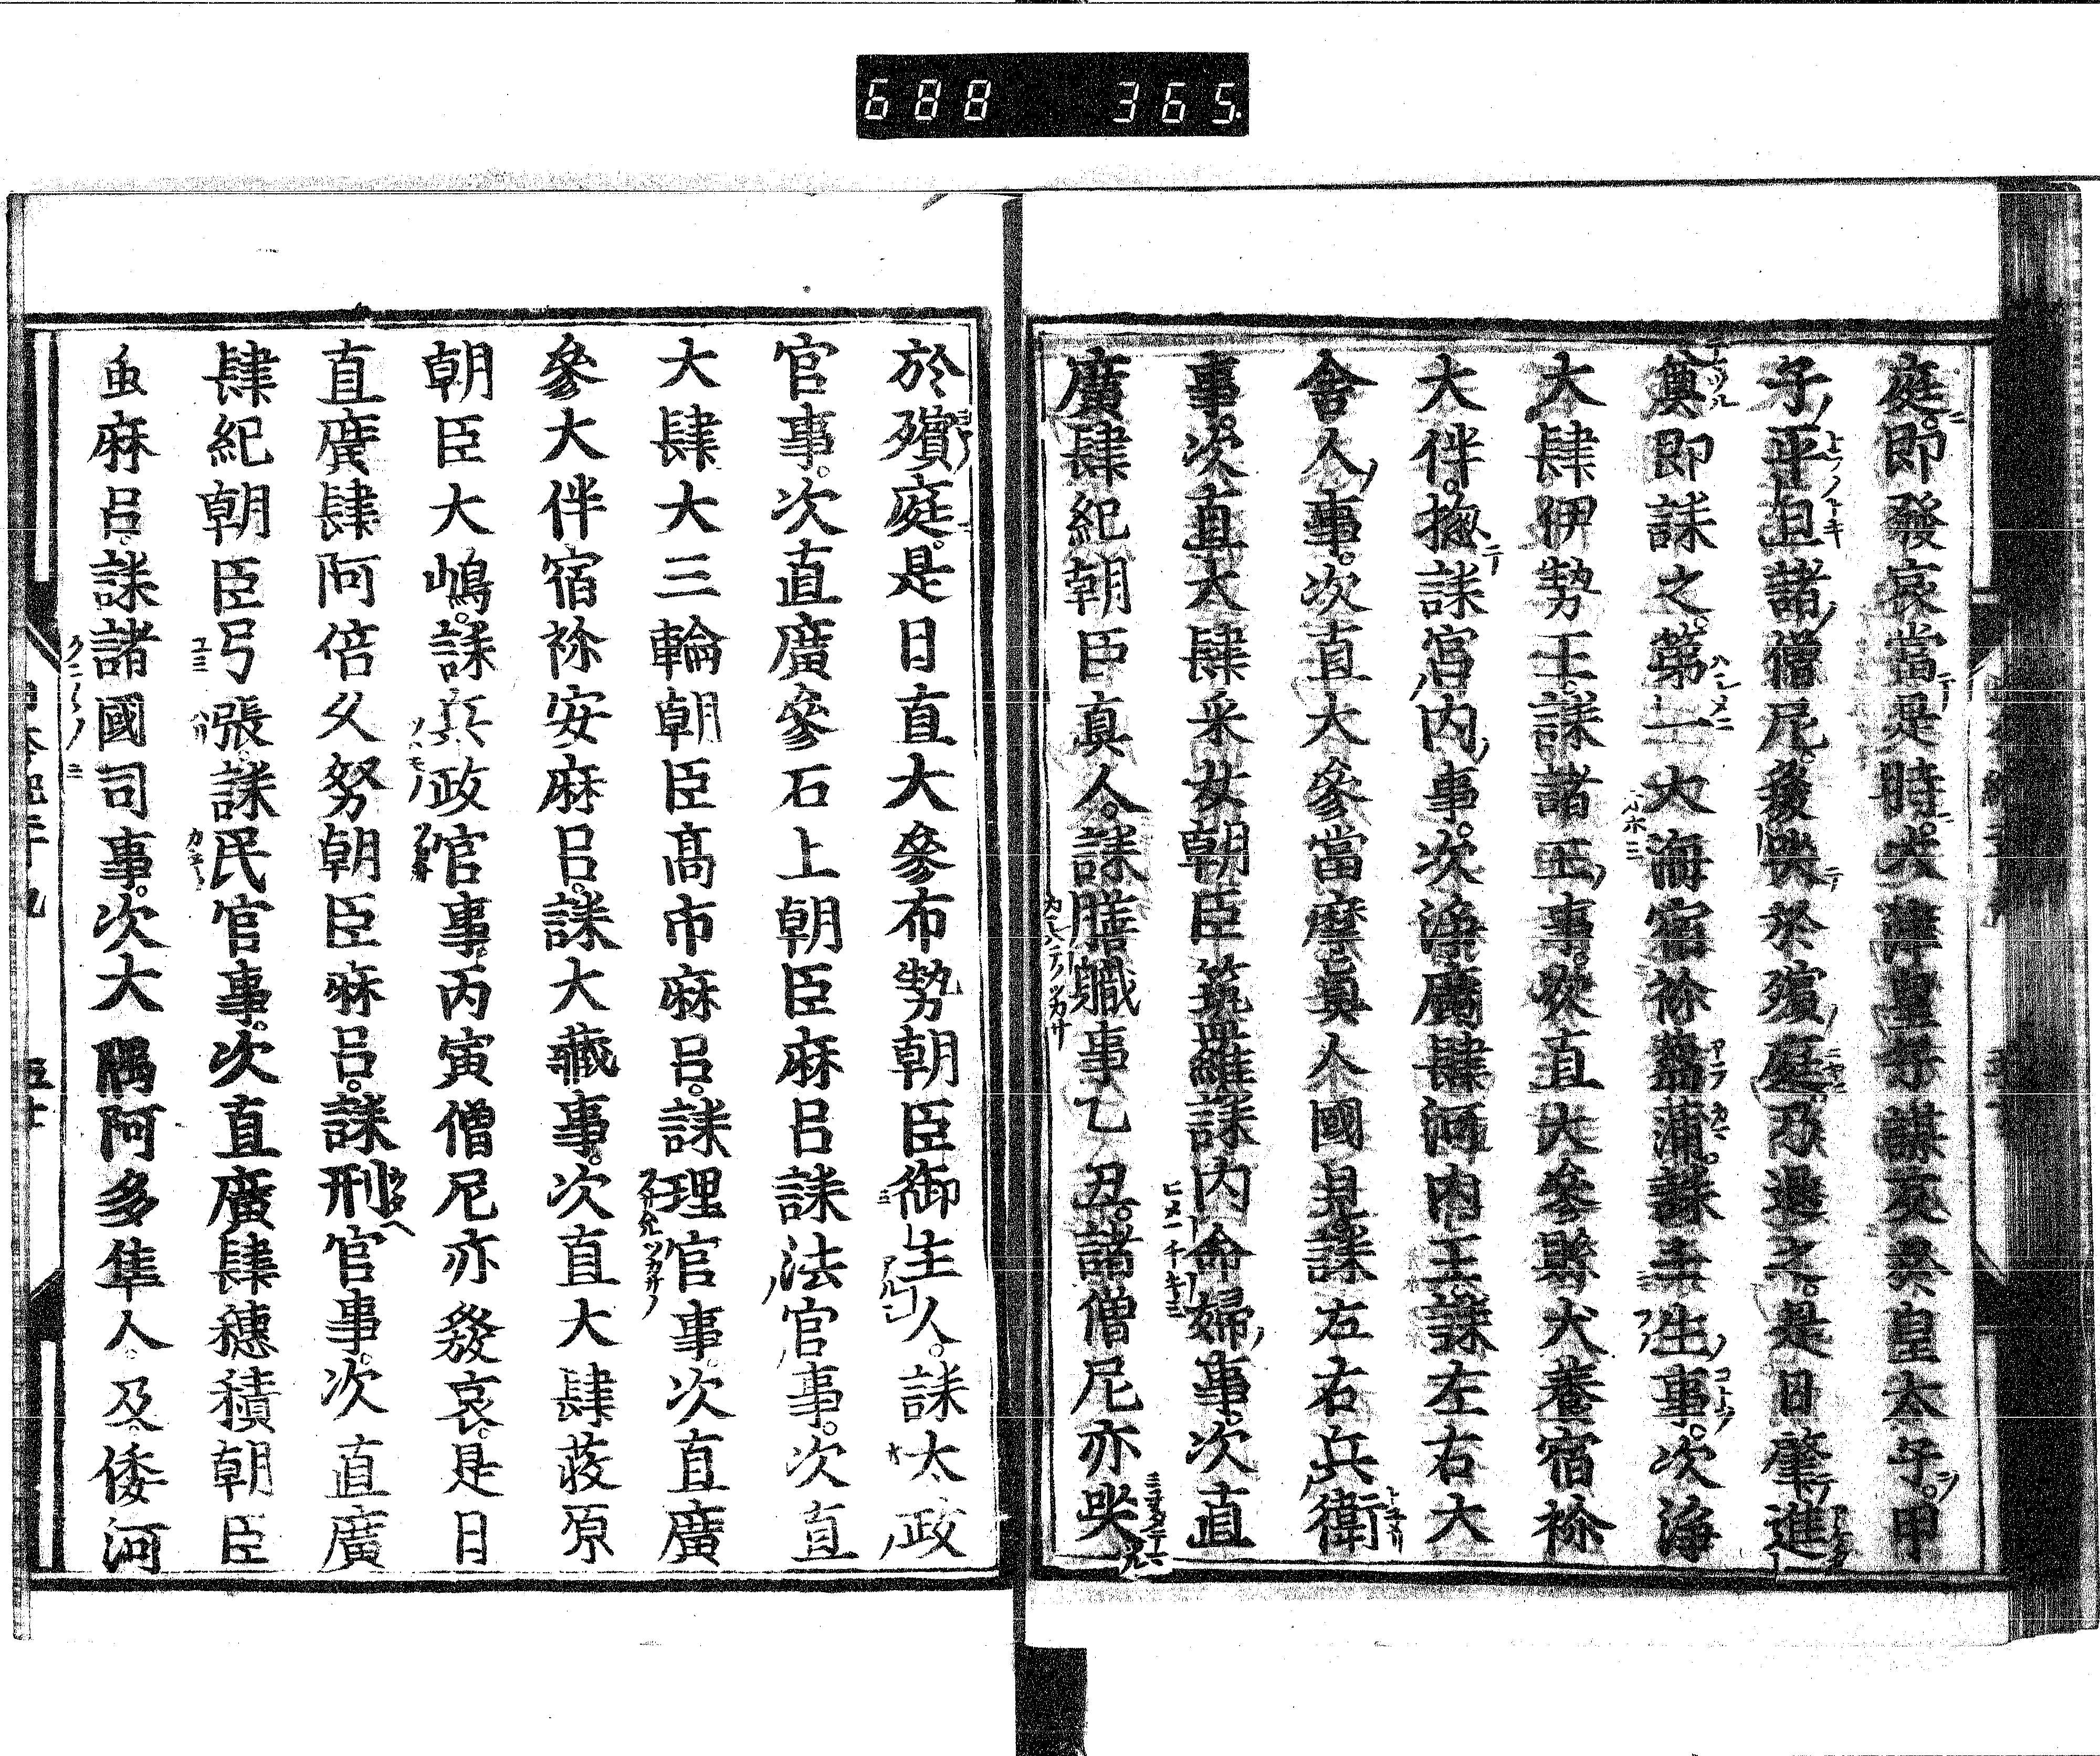 688 365
庭。即發哀。當是時。大津皇子謀反於皇太子。甲
子。平旦諸僧尼。發哭於殯庭。乃退之。是日肇進
奠即誄之。第一大海宿祢蒭蒲。誄壬生事。次淨
大肆伊勢王。誄諸王事。次直大參縣犬養宿祢
大伴。摠誄宮內事。次淨廣肆河内王。誄左右大
舍人事。次直大參當摩真人國見。誄左右兵衛
事。次直大肆采女朝臣筑羅。誄内命婦事。次直
廣肆紀朝臣真人。誄膳職事。乙丑。諸僧尼亦哭
於殯庭。是日直大參布勢朝臣御主人。誄太政
官事。次直廣參石上朝臣麻呂誄法官事。次直
大肆大三輪朝臣高市麻呂。誄理官事。次直廣
參大伴宿祢安麻呂。誄大藏事。次直大肆藤原
朝臣大嶋。誄兵政官事。丙寅僧尼亦發哀。是日
直廣肆阿倍久努朝臣麻呂。誄刑官事。次直廣
肆紀朝臣弓張誄民官事。次直廣肆穗積朝臣
虫麻呂。誄諸國司事。次大隅阿多隼人。及倭河